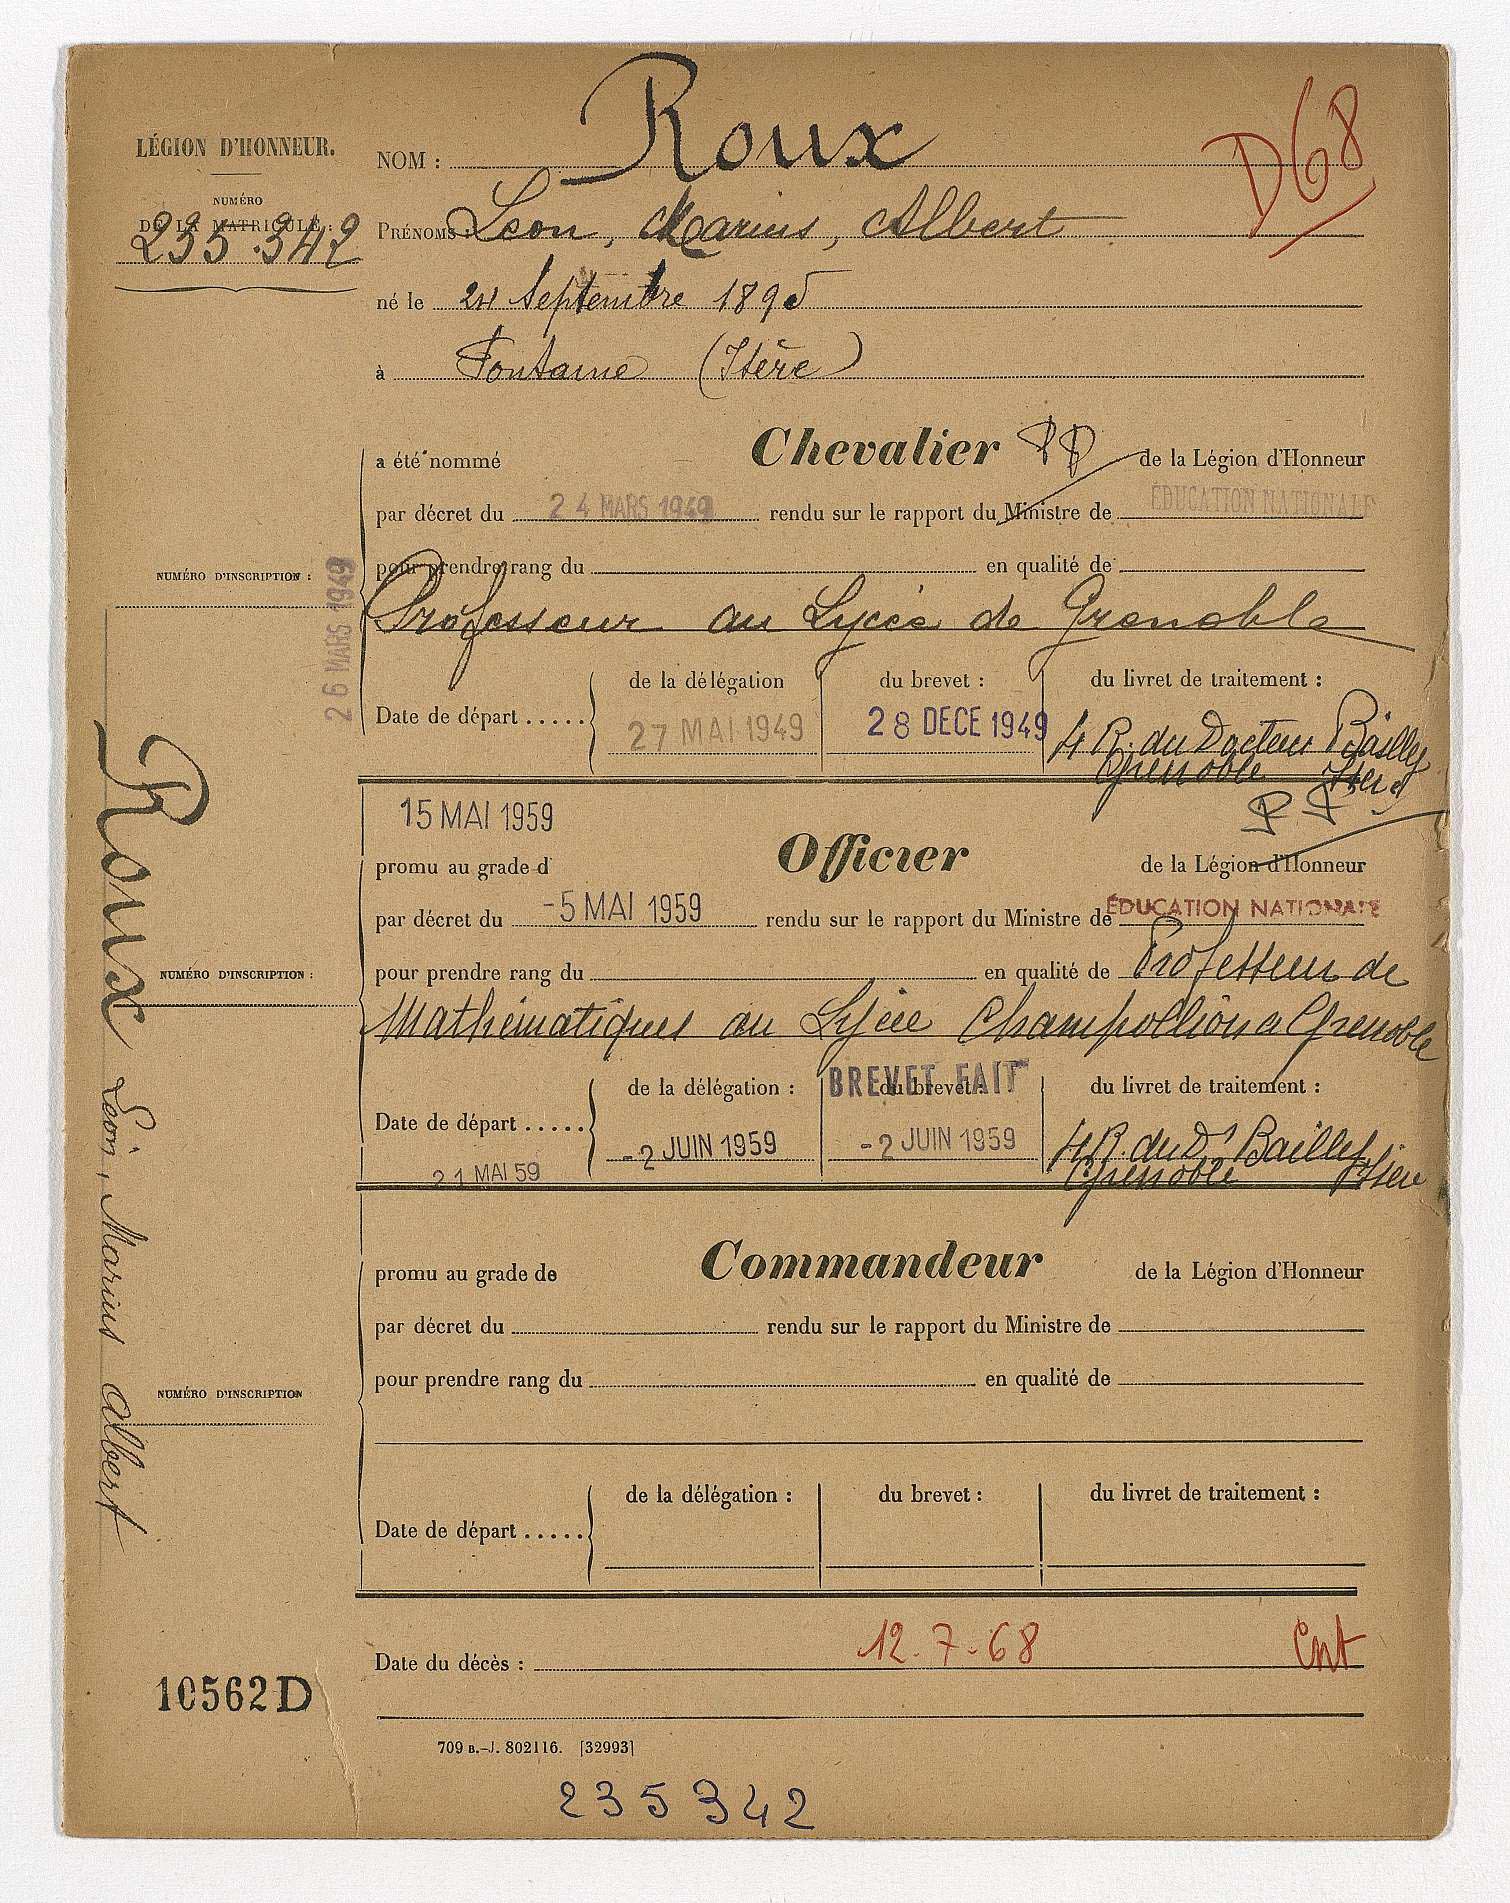 LÉGION D'HONNEUR.
NUMÉRO
DE LA MATRICULE :
235.342
D68
NOM : Roux
PRÉNOMS : Léon, Marius, Albert
né le 24 Septembre 1895
à Fontaine (Isère)
a été nommé Chevalier PP de la Légion d'Honneur
par décret du 24 MARS 1949 rendu sur le rapport du Ministre de EDUCATION NATIONALE
NUMÉRO D'INSCRIPTION :
26 MARS 1949
pour prendre rang du en qualité de
Professeur au Lycée de Grenoble
de la délégation du brevet : du livret de traitement :
Date de départ ..... 27 MAI 1949 28 DECE 1949 4 R. du Docteur Bailly
Grenoble Isère
15 MAI 1959 PP
promu au grade d Officier de la Légion d'Honneur
par décret du -5 MAI 1959 rendu sur le rapport du Ministre de ÉDUCATION NATIONALE
NUMÉRO D'INSCRIPTION :
pour prendre rang du en qualité de Professeur de
Mathématiques au Lycée Champollion a Grenoble
de la délégation : BREVET FAIT du brevet : du livret de traitement :
Date de départ ..... -2 JUIN 1959 -2 JUIN 1959 4 R. du Dr Bailly
21 MAI 59 Grenoble Isère
promu au grade de Commandeur de la Légion d'Honneur
par décret du rendu sur le rapport du Ministre de
NUMÉRO D'INSCRIPTION
pour prendre rang du en qualité de
de la délégation : du brevet : du livret de traitement :
Date de départ .....
Roux Léon, Marius Albert
Date du décès : 12.7.68
10562 D
709 B.-J. 802116. [32993]
235342